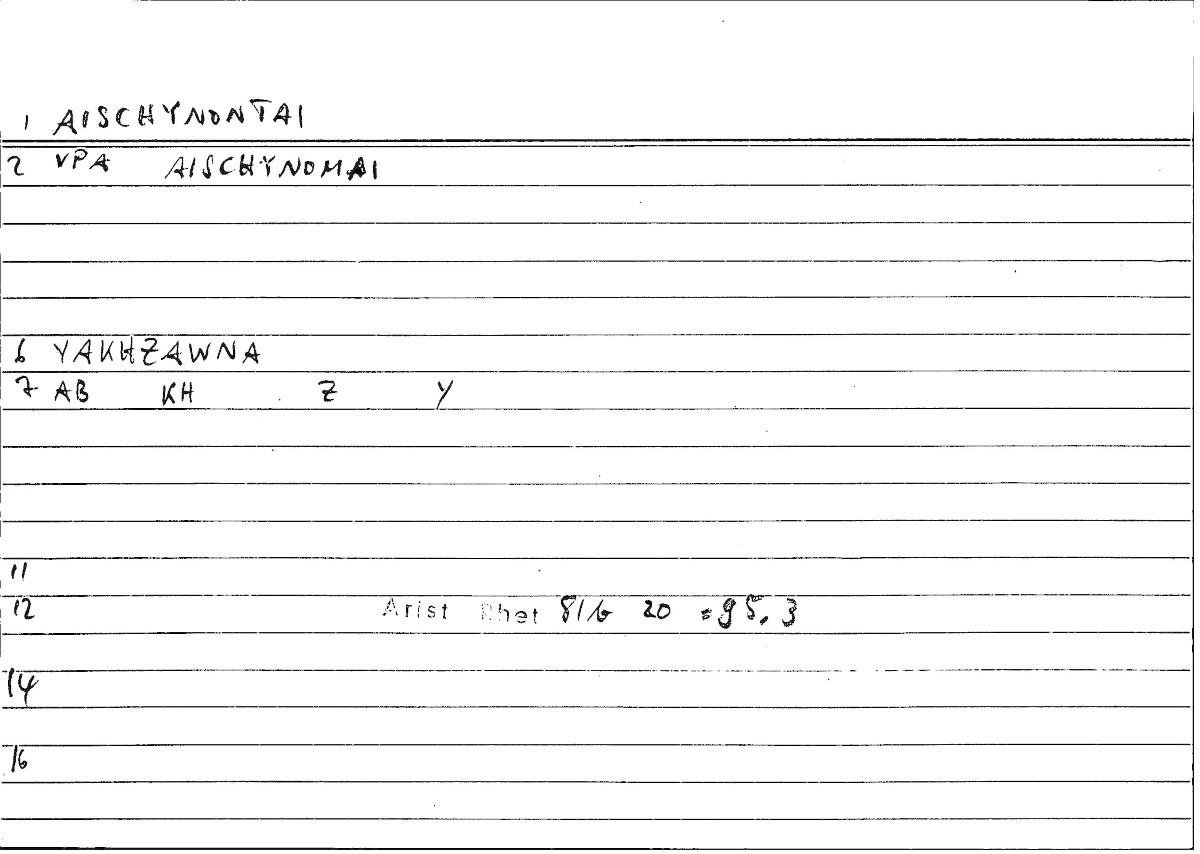 1 AISCHYNONTAI
2 VPA AISCHYNOMAI
6 YAKHZAWNA
7 AB KH Z Y
11
12 Arist Rhet 81b 20 =95,3
14
16